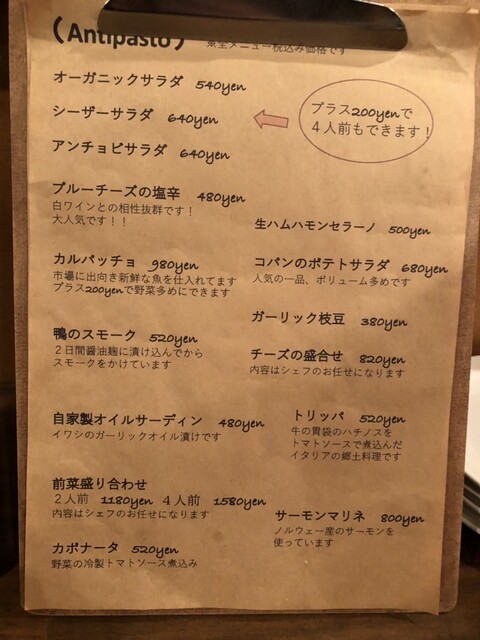 (Antipasto)
※全メニュー税込み価格です
オーガニックサラダ 540yen
シーザーサラダ 640yen
アンチョビサラダ 640yen
プラス200yenで
4人前もできます!
ブルーチーズの塩辛 480yen
白ワインとの相性抜群です!
大人気です!!
生ハムハモンセラーノ 500yen
カルパッチョ 980yen
市場に出向き新鮮な魚を仕入れてます
プラス200yenで野菜多めにできます
コパンのポテトサラダ 680yen
人気の一品、ボリューム多めです
ガーリック枝豆 380yen
鴨のスモーク 520yen
2日間醤油麹に漬け込んでから
スモークをかけています
チーズの盛合せ 820yen
内容はシェフのお任せになります
自家製オイルサーディン 480yen
イワシのガーリックオイル漬けです
トリッパ 520yen
牛の胃袋のハチノスを
トマトソースで煮込んだ
イタリアの郷土料理です
前菜盛り合わせ
2人前 1180yen 4人前 1580yen
内容はシェフのお任せになります
サーモンマリネ 800yen
ノルウェー産のサーモンを
使っています
カポナータ 520yen
野菜の冷製トマトソース煮込み